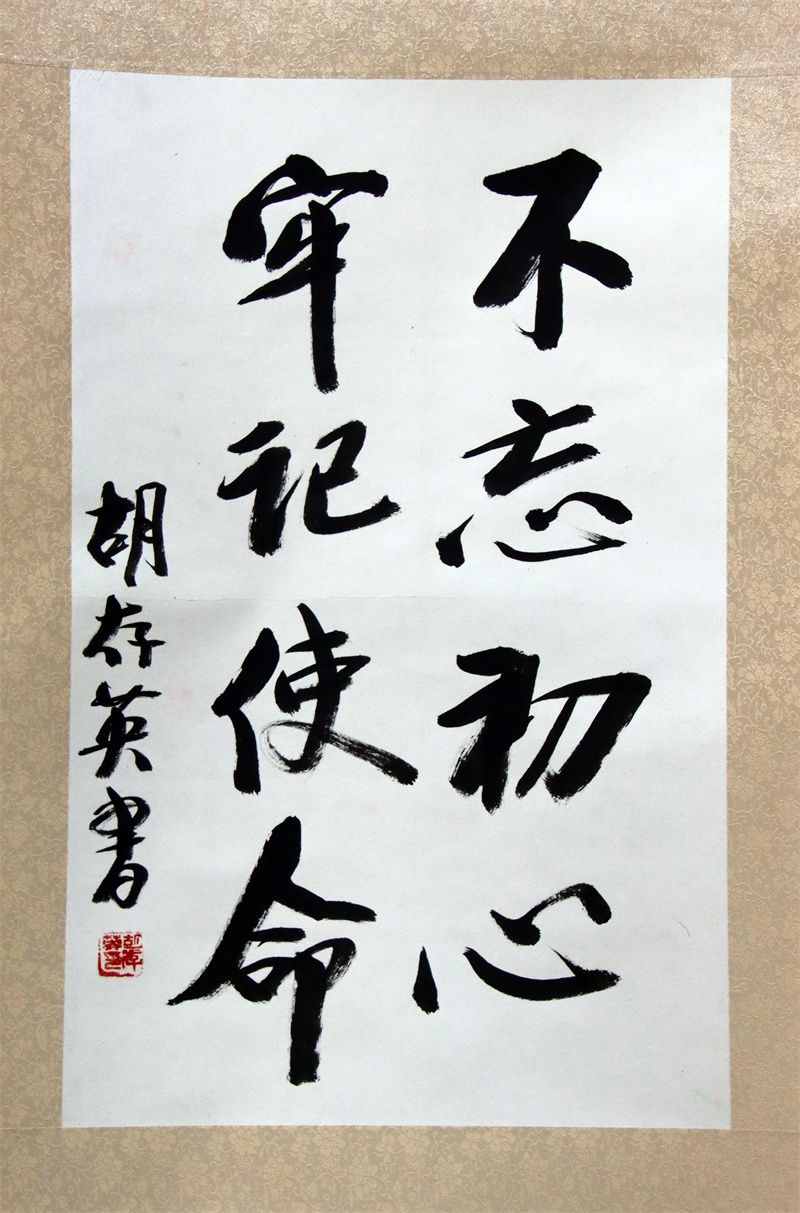 不忘初心
牢记使命
胡存英书